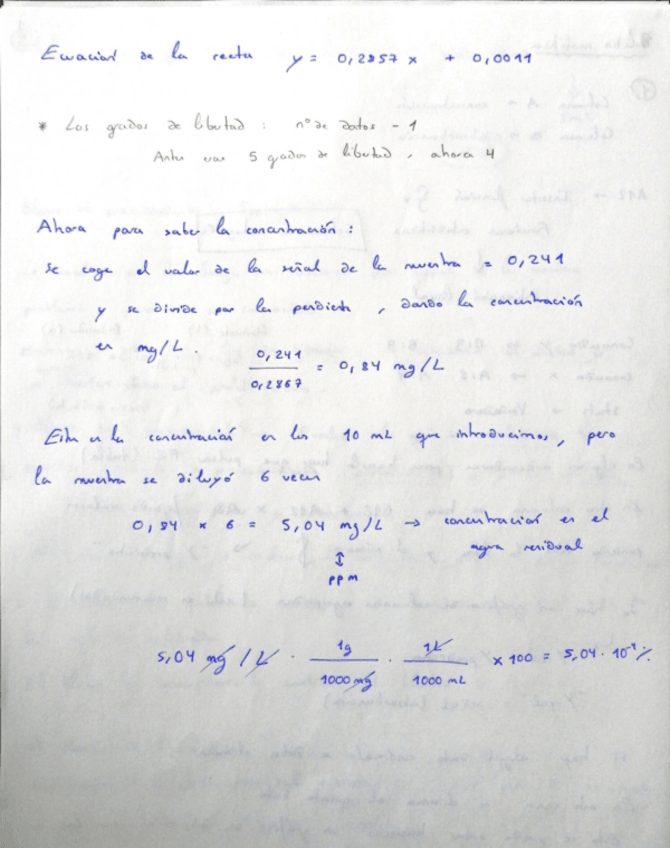 Ecuación de la recta y = 0,2857 x + 0,0011
* Los grados de libertad : nº de datos - 1
Antes eran 5 grados de libertad, ahora 4
Ahora para saber la concentración :
se coge el valor de la señal de la muestra = 0,241
y se divide por la pendiente, dando la concentración
en mg/L. 0,241 / 0,2867 = 0,84 mg/L
Esta es la concentración en los 10 mL que introducimos, pero
la muestra se diluyó 6 veces
0,84 x 6 = 5,04 mg/L → concentración en el
agua residual
↕
ppm
5,04 mg / L · 1g / 1000 mg · 1L / 1000 mL x 100 = 5,04 · 10⁻⁴ %